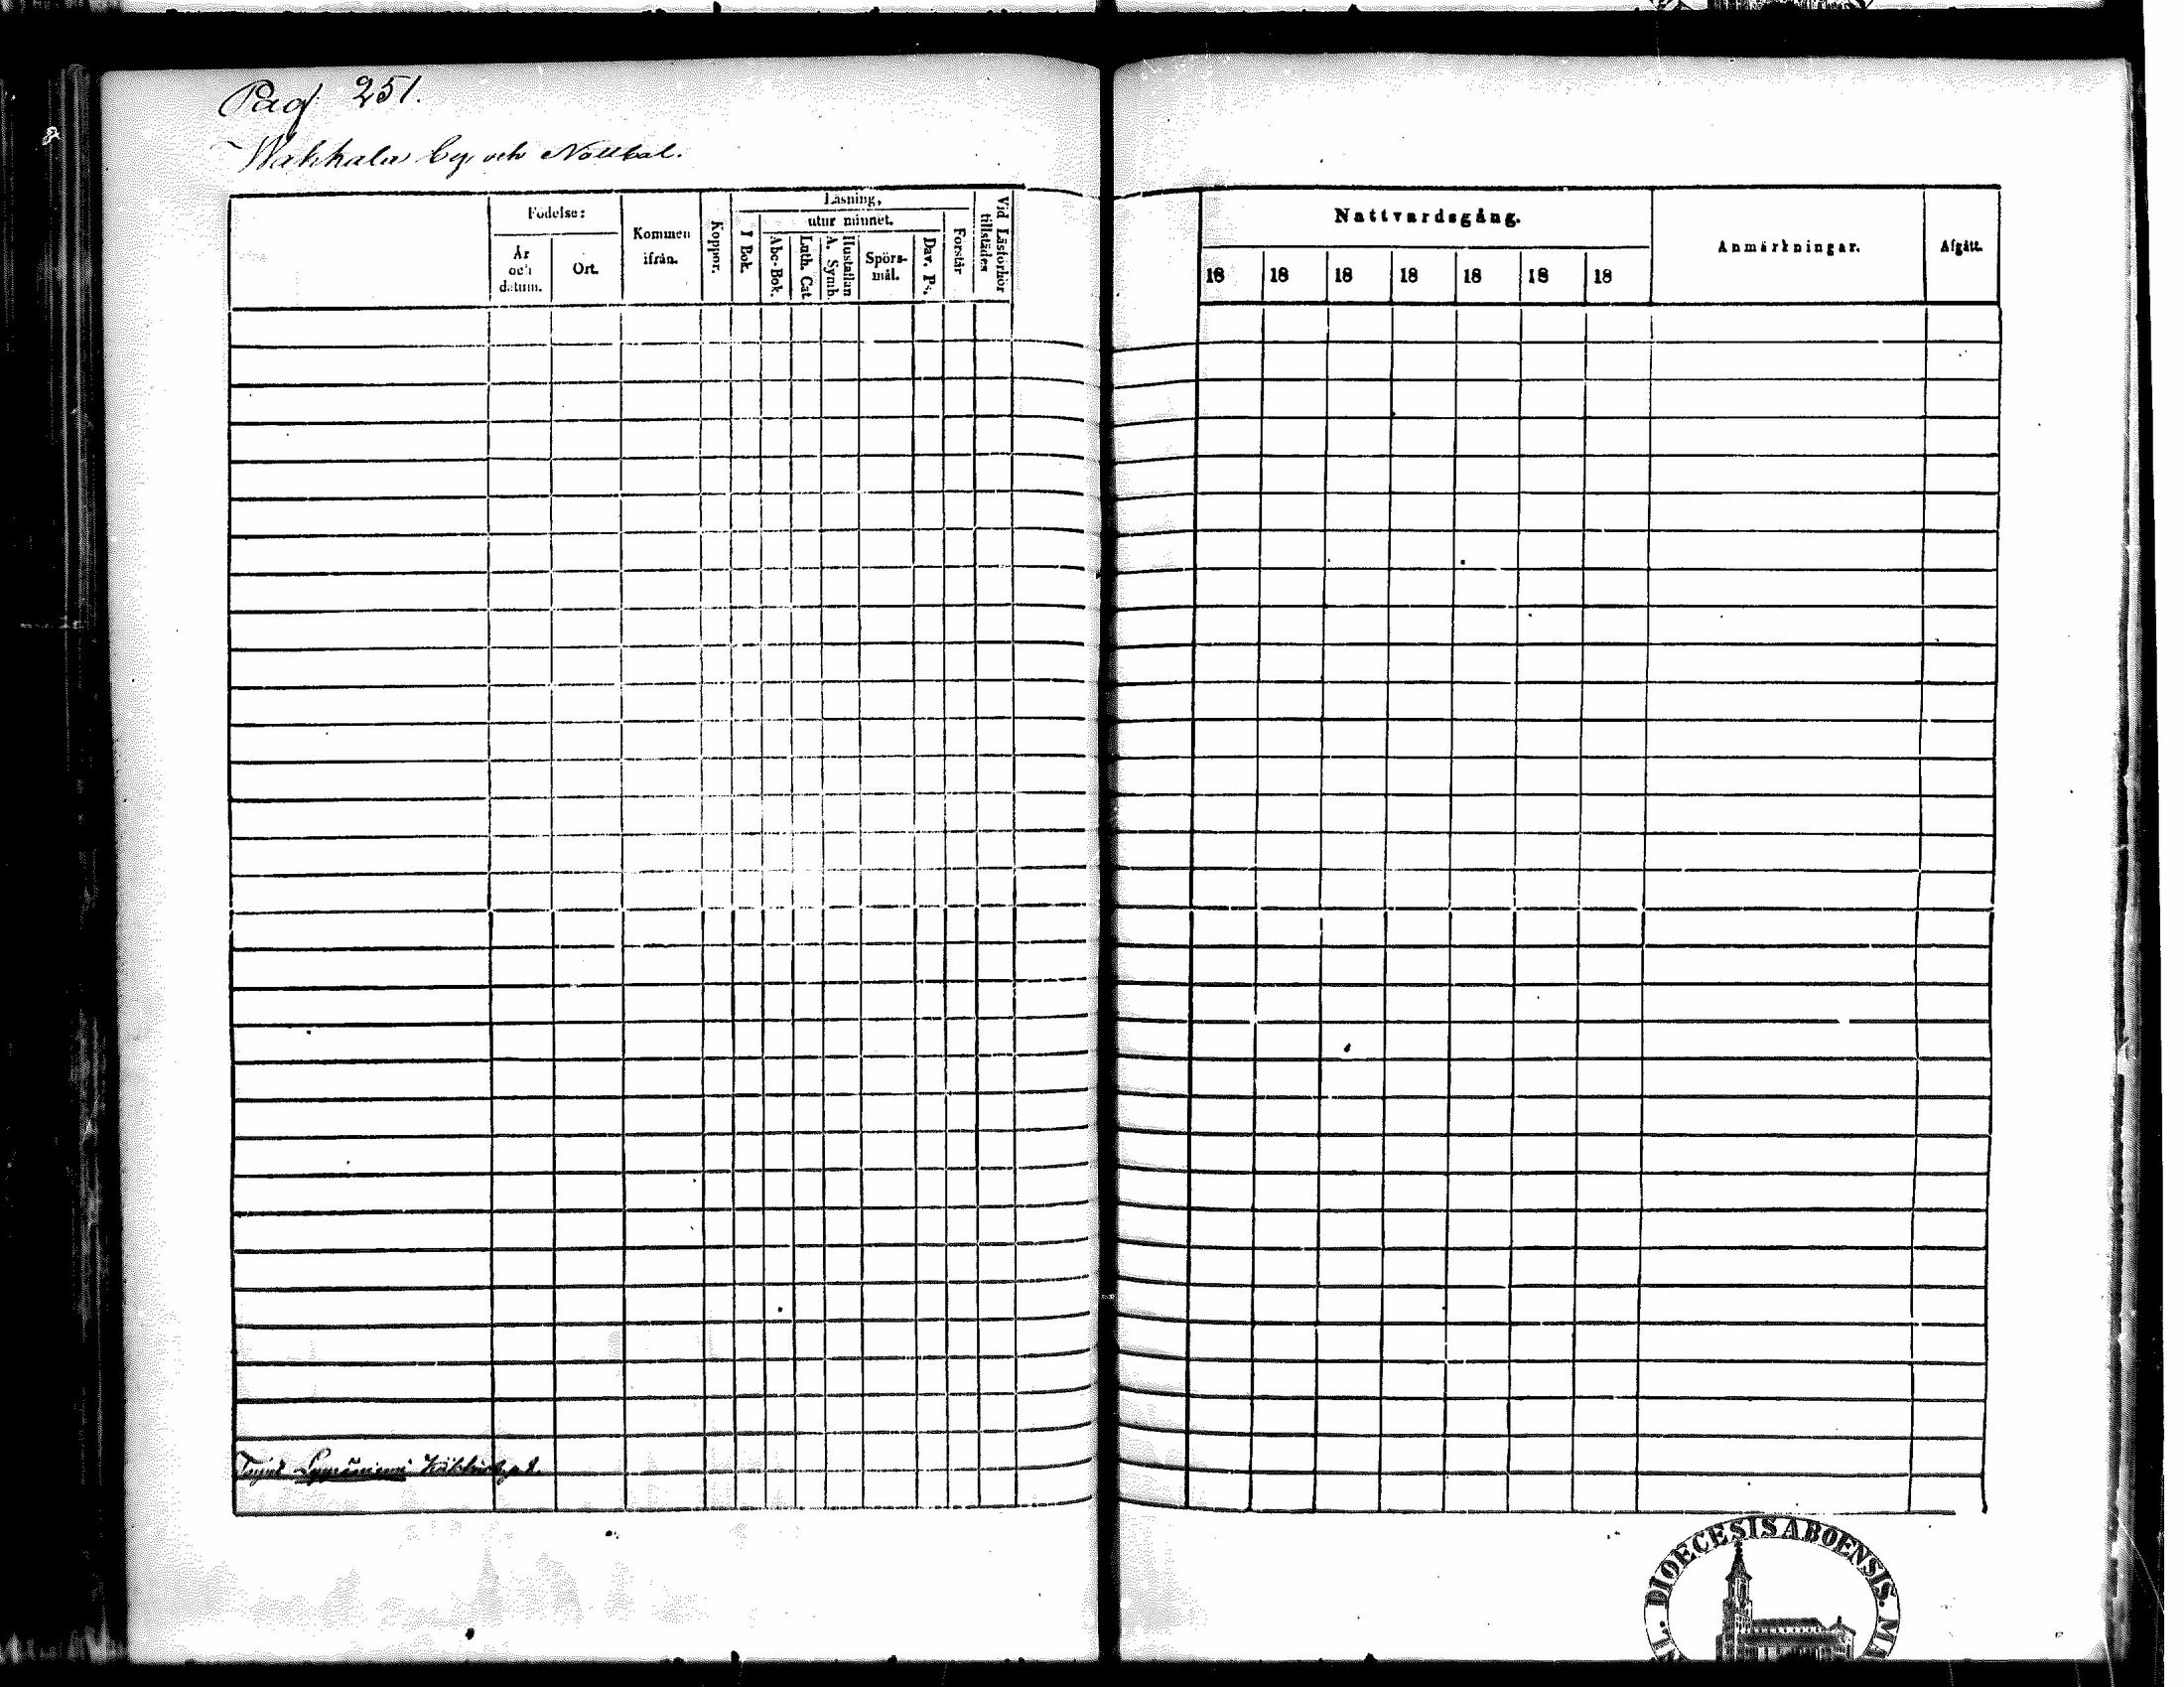 Pag 251.
Wahhala by och Nollbol.
Födelse:
År och datum.
Ort.
Kommen ifrån.
Koppor.
Läsning,
utur minnet.
I Bok.
Abc-Bok.
Luth. Cat.
Hustaflan A. Symb.
Spörs-mål.
Dav. Ps.
Förstår
Vid Läsförhör tillstädes
Nattvardsgång.
18 18 18 18 18 18 18
Anmärkningar.
Afgått.
Lyyräniemi
DIOECESIS ABOENSIS.